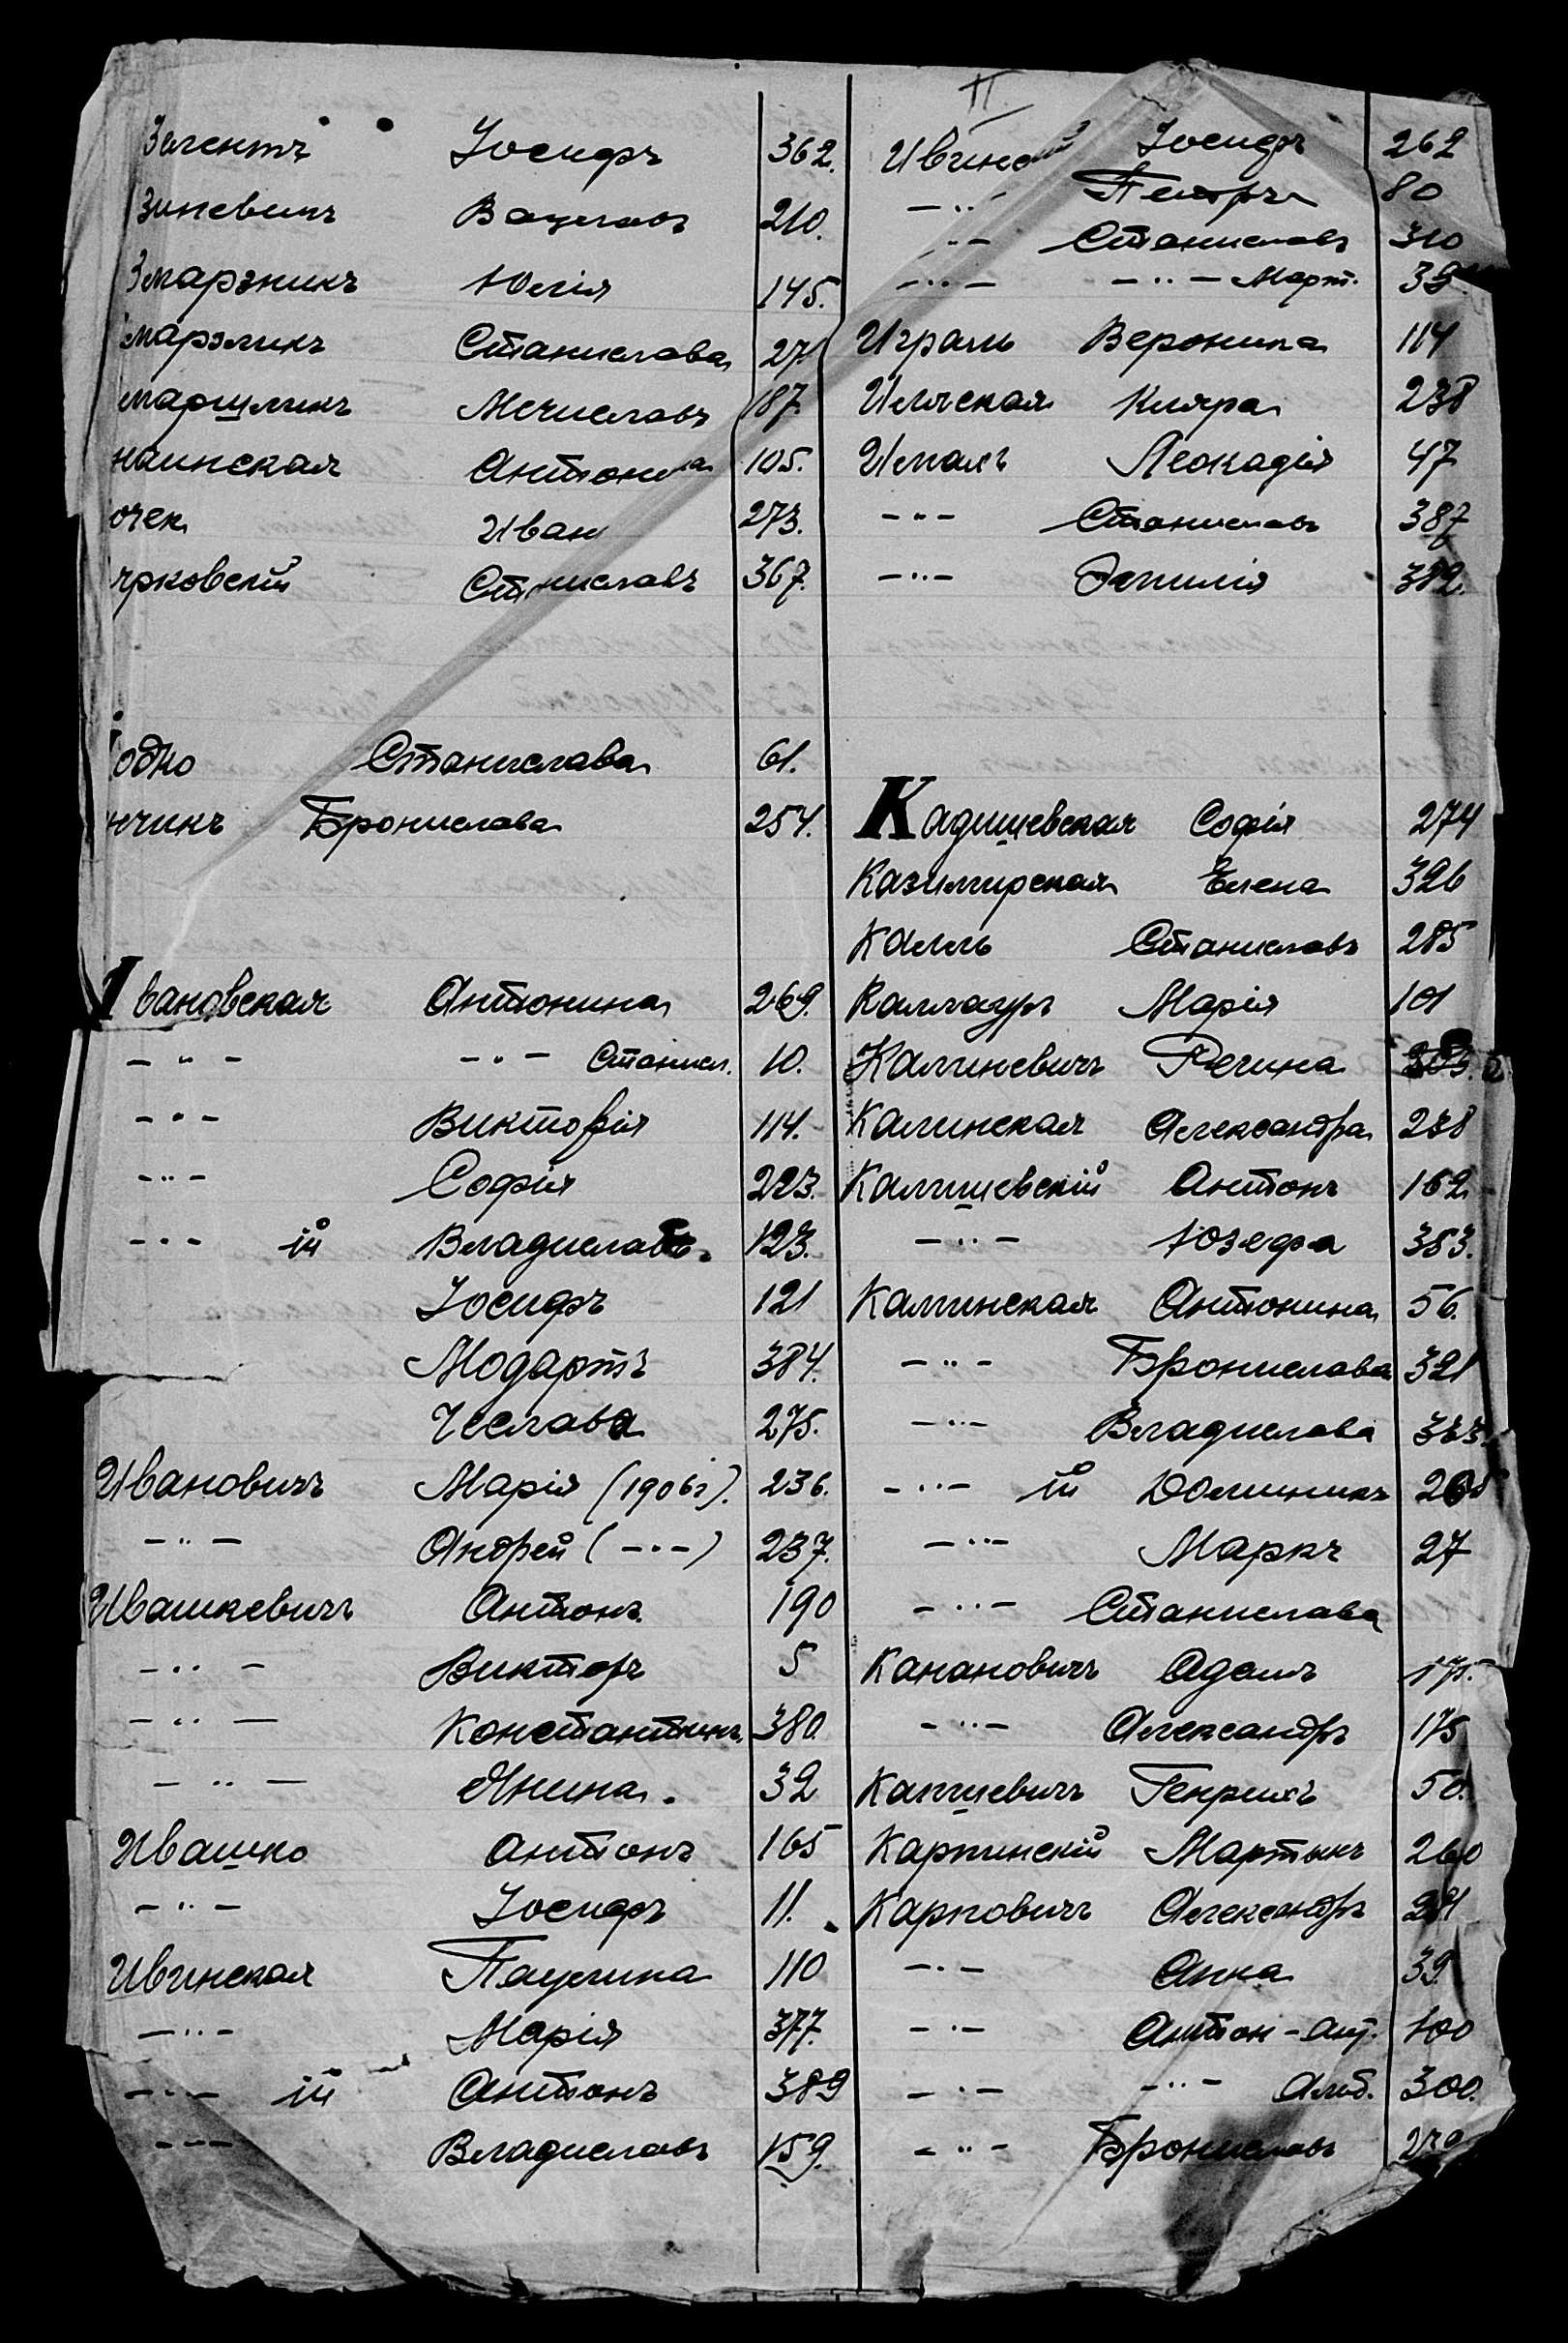 II.
Зелентъ Іосифъ 362.
Зиневичъ Вацлавъ 210.
Змарзникъ Юлія 145.
марзликъ Станислава 27.
марщликъ Мечиславъ 187.
наинская Антонина 105.
очек Иван 273.
ярковскій Станиславъ 367.
одко Станислава 61.
нчикъ Бронислава 254.
Ивановская Антонина 269.
— " — — " — Станисл. 10.
— " — Викторія 114.
— " — Софія 223.
— " — ій Владиславъ. 123.
Іосифъ 121
Модартъ 384.
Чеслава 275.
Ивановичъ Марія (1906г). 236.
— " — Андрей (— " —) 237.
Ивашкевичъ Антонъ 190
— " — Викторъ 5
— " — Константинъ. 380.
— " — Янина. 32
Ивашко Антонъ 165
— " — Іосифъ 11.
Ивинская Паулина 110
— " — Марія 377.
— " — ій Антонъ 389
— " — Владиславъ 159.
Ивинскій Іосифъ 262
— " — Петръ 80
— " — Станиславъ 310
— " — — " — Март. 39
Играль Вероника 114
Иллская Клара 238
Ималъ Леокадія 47
— " — Станиславъ 387
— " — Эмилія 382.
Кадишевская Софія 274
Казимирская Елена 326
Калль Станиславъ 285
Каллауръ Марія 101
Калиневичъ Регина
Калинская Александра 238
Калишевскій Антонъ 162
— " — Юзефа 383.
Каминская Антонина 56.
— " — Бронислава 321
— " — Владислава 333.
— " — ій Доминикъ
— " — Маркъ 27
— " — Станислава
Канановичъ Адамъ 175.
— " — Александръ 175
Капшевичъ Генрихъ 50.
Карпинскій Мартынъ 260
Карповичъ Александръ
— " — Анна 39
— " — Антон - Ант. 100
— " — — " — Альб. 300.
— " — Брониславъ